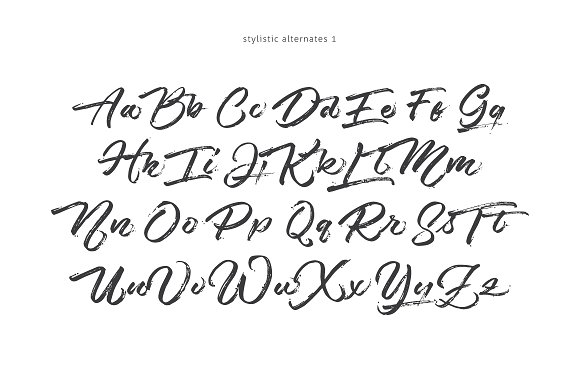 stylistic alternates 1
Aa Bb Cc Dd Ee Ff Gg
Hh Ii Jj Kk Ll Mm
Nn Oo Pp Qq Rr Ss Tt
Uu Vv Ww Xx Yy Zz